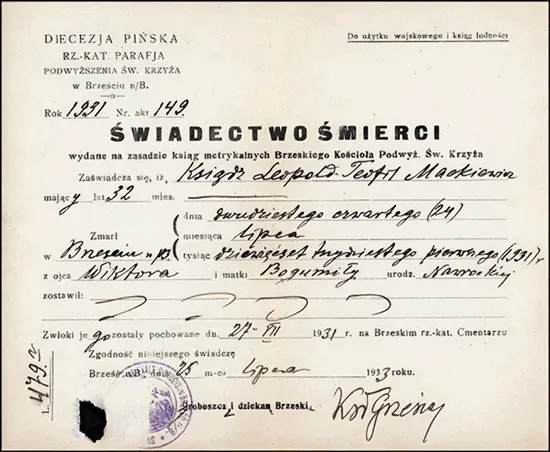 DIECEZJA PIŃSKA
RZ.-KAT. PARAFJA
PODWYŻSZENIA ŚW. KRZYŻA
w Brześciu n/B.
Do użytku wojskowego i ksiąg ludności
Rok 1931 Nr. akt 149.
ŚWIADECTWO ŚMIERCI
wydane na zasadzie ksiąg metrykalnych Brzeskiego Kościoła Podwyż. Św. Krzyża
Zaświadcza się, iż Ksiądz Leopold-Teofil Mackiewicz
mający lat 32 mies.
dnia dwudziestego czwartego (24)
Zmarł miesiąca lipca
w Brześciu n/B. tysiąc dziewięćset trzydziestego pierwszego (1931) r
z ojca Wiktora i matki Bogumiły urodz. Nawrockiej
zostawił:
Zwłoki jego zostały pochowane dn. 27-VII 1931 r. na Brzeskim rz.-kat. Cmentarzu
Zgodność niniejszego świadczę
Brześć n/B., dnia 25 m-ca lipca 1933 roku.
Proboszcz i dziekan Brzeski
L. 479